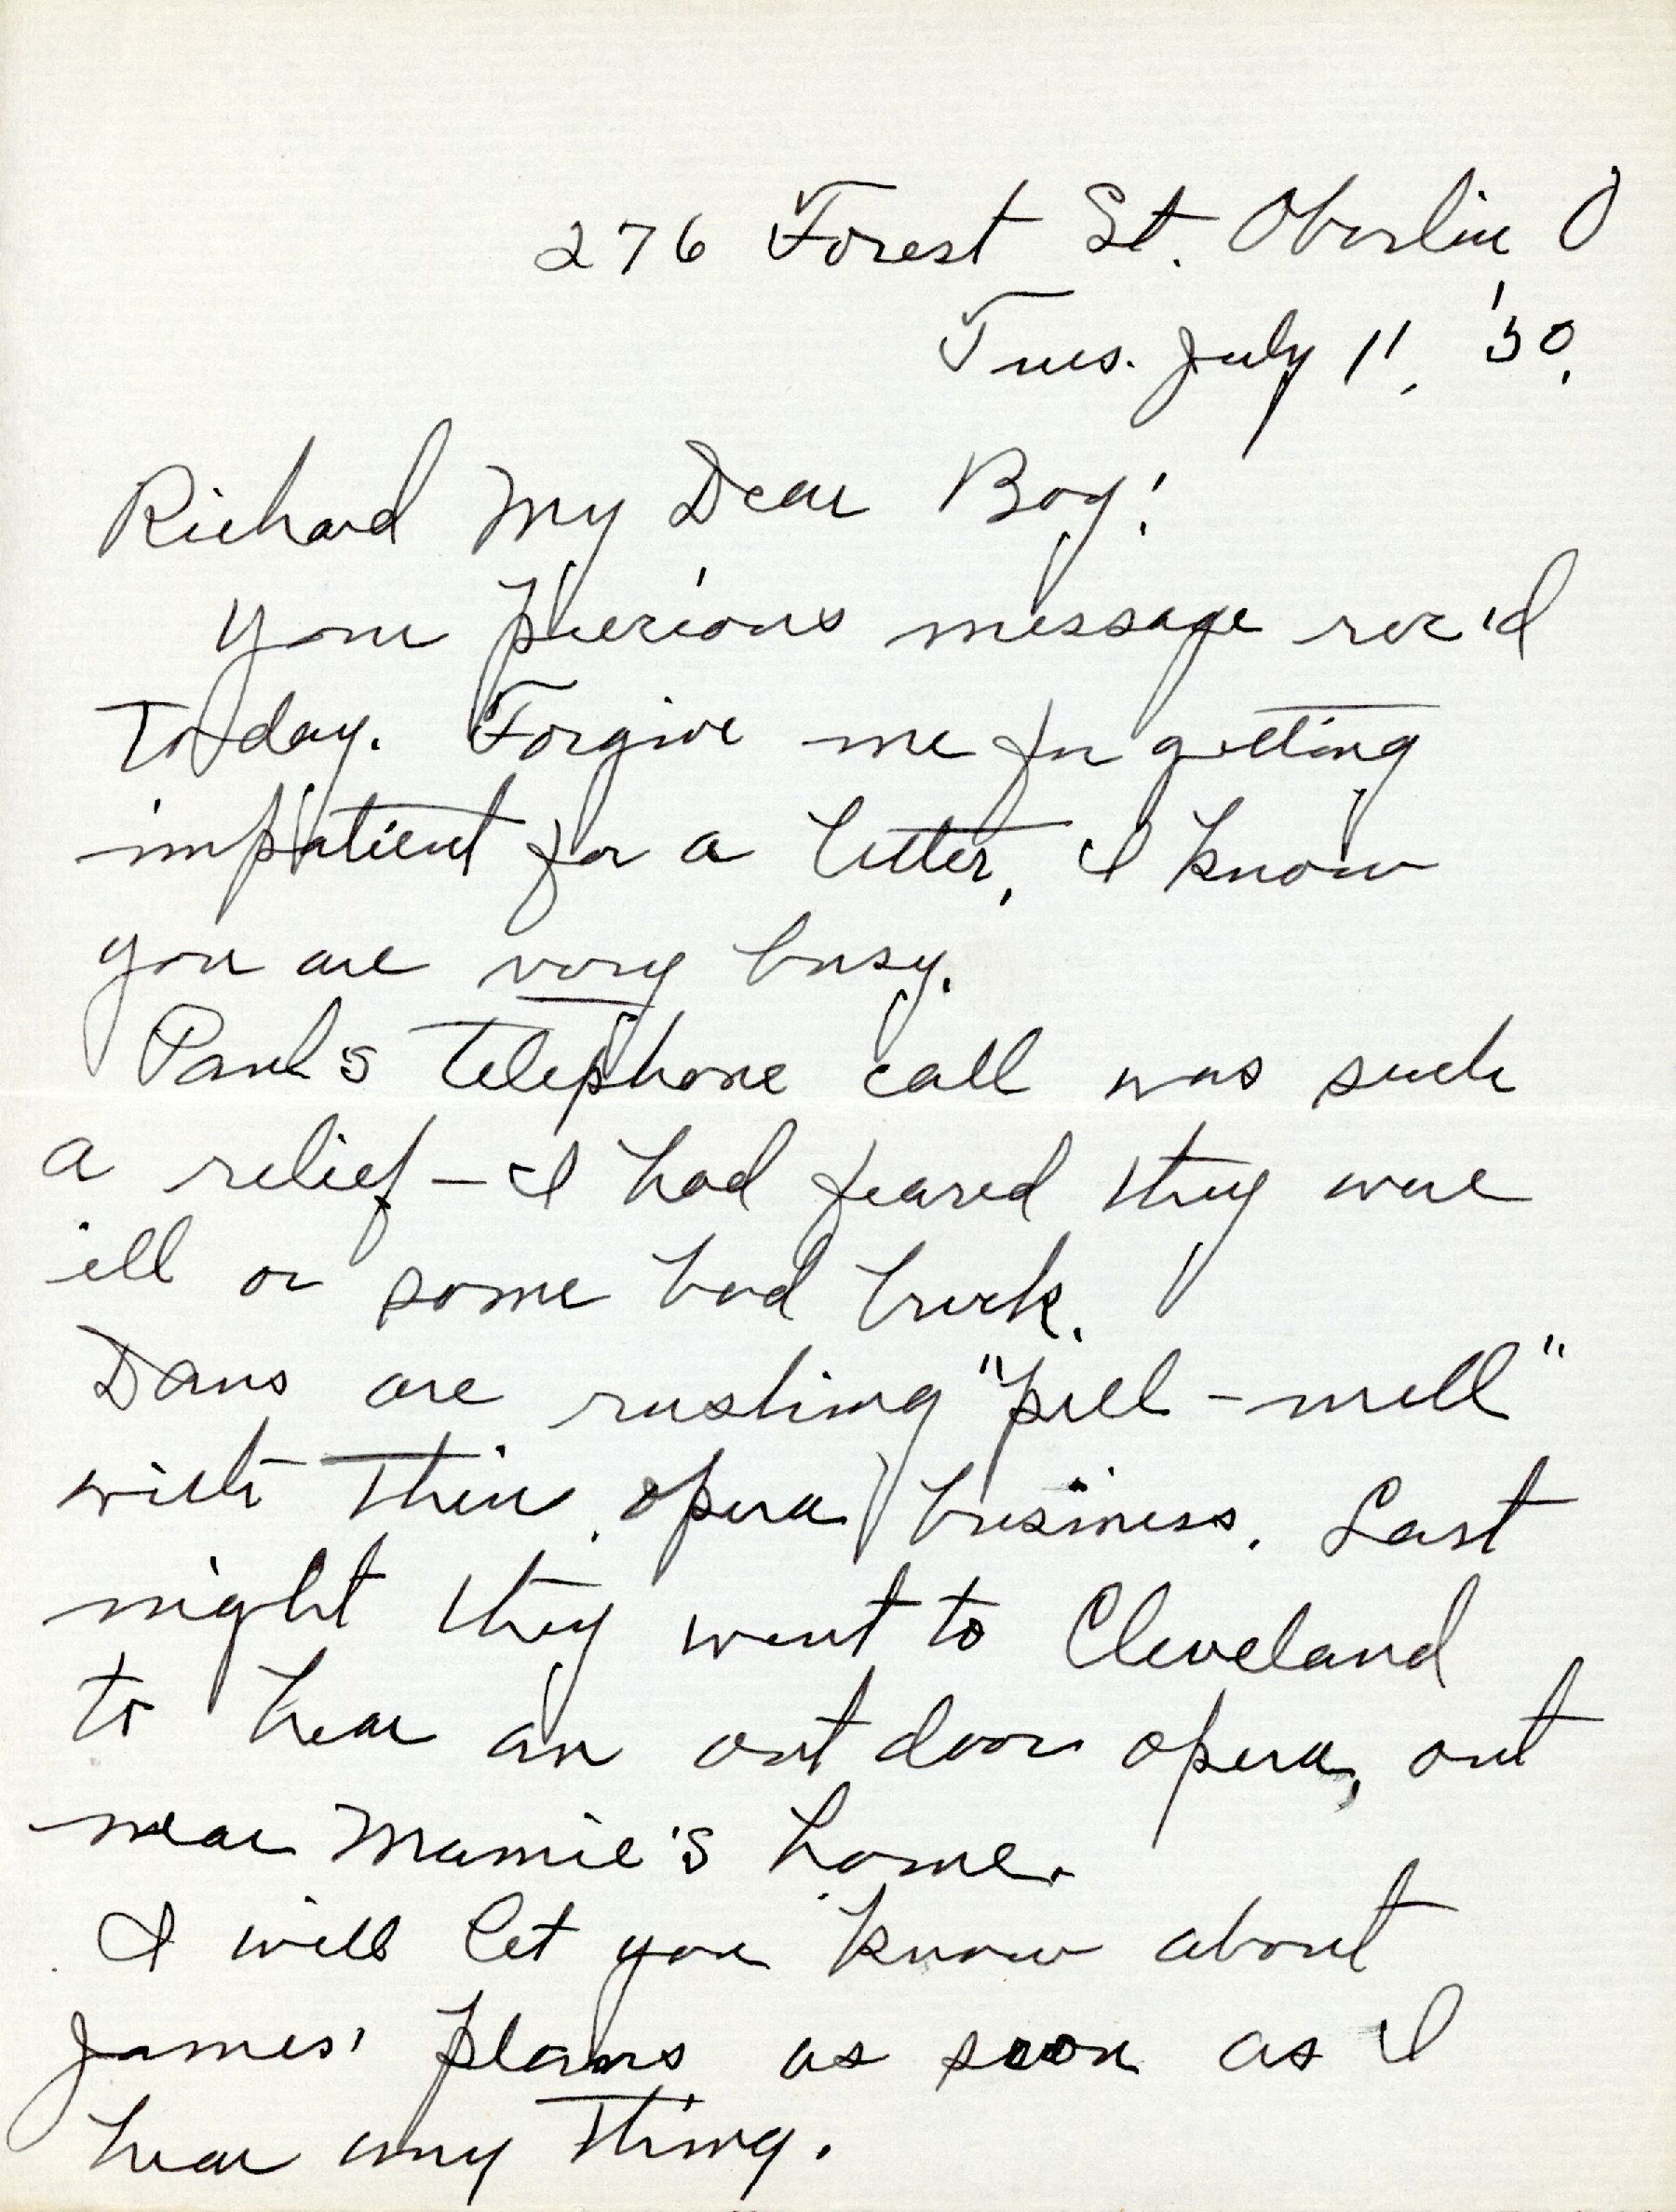 276 Forest St. Oberlin O
Tues. July 11, '50.
Richard My Dear Boy!
Your precious message rec'd
Today. Forgive me for getting
impatient for a letter, I know
you are very busy.
Paul's telephone call was such
a relief – I had feared they were
ill or some bad luck.
Dans are rushing "pell-mell"
with their opera business. Last
night they went to Cleveland
to hear an out door opera, out
near Mamie's home.
I will let you know about
James' plans as soon as I
hear any thing.